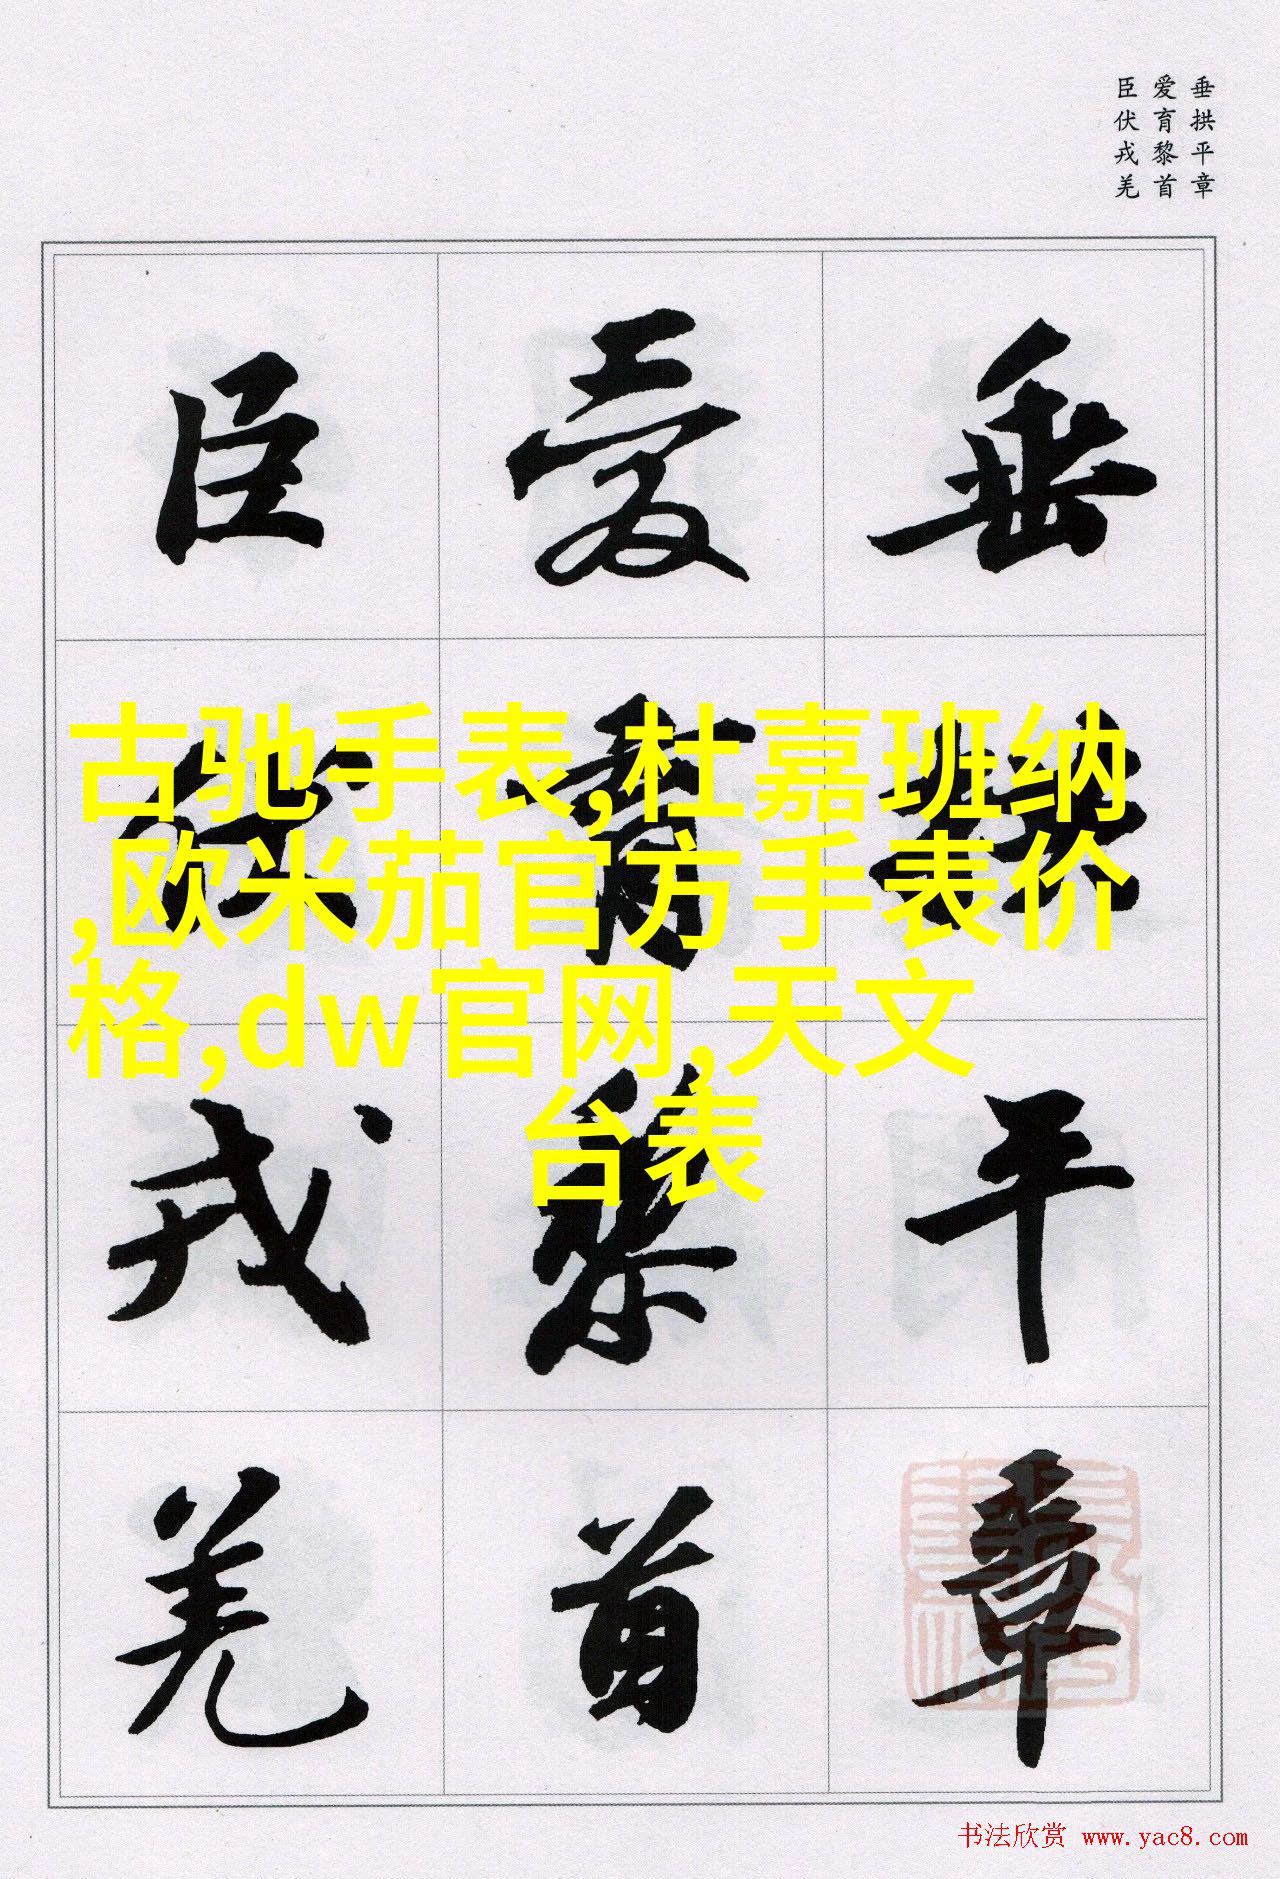 垂拱平章
爱育黎首
臣伏戎羌
垂拱平章
爱育黎首
臣伏戎羌
古驰手表,杜嘉班纳
,欧米茄官方手表价
格,dw官网,天文
台表
书法欣赏 www.yac8.com